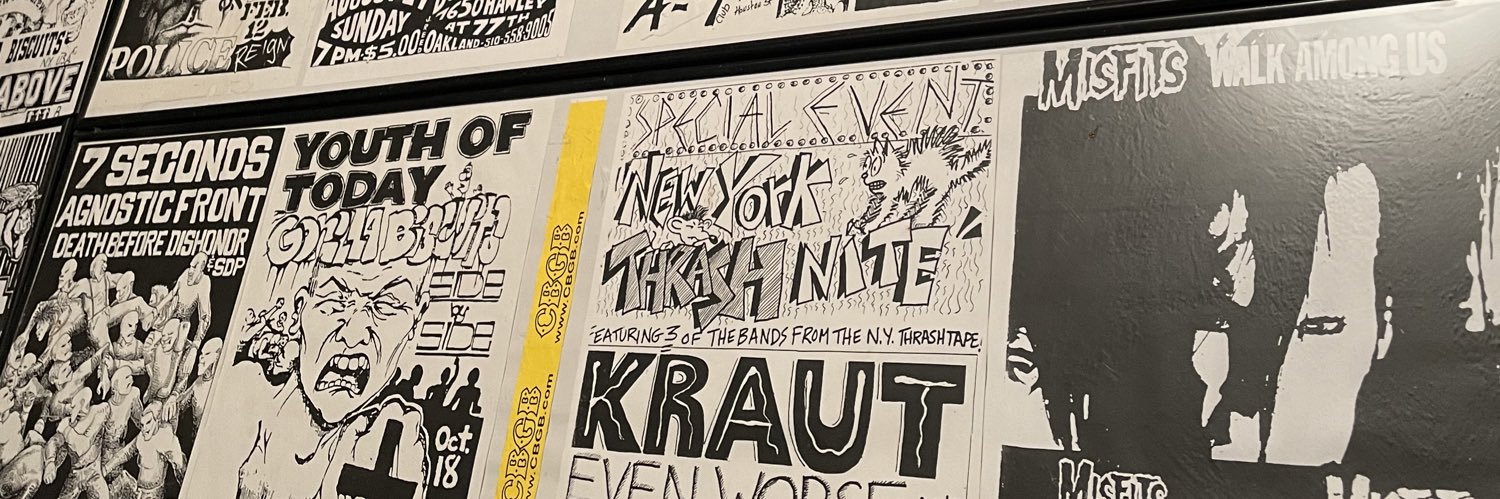 BISCUITS
ABOVE
FEB
12
POLICE
REIGN
SUNDAY
4630 HAWLEY
AT 77TH
7PM • $5.00 • OAKLAND • 510-558-9005
A-
7 SECONDS
AGNOSTIC FRONT
DEATH BEFORE DISHONOR
& SDP
YOUTH OF
TODAY
GORILLA BISCUITS
SIDE
by
SIDE
Oct.
18
CBGB
www.CBGB.com
CBGB
www.CBGB.com
SPECIAL EVENT
NEW YORK
THRASH NITE
EATURING 3 OF THE BANDS FROM THE N.Y. THRASH TAPE
KRAUT
EVEN WORSE
MISFITS WALK AMONG US
MISFITS